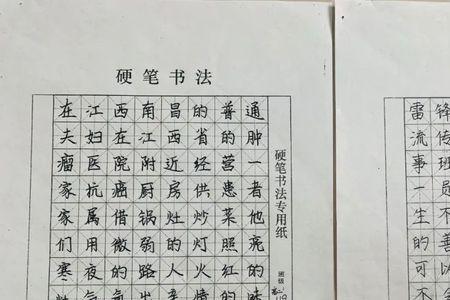 硬笔书法
在江西南昌的普通
夫妇在江西省的肿
瘤医院附近经营一
家抗癌厨房供患者
家属借锅灶炒菜他
们用微弱的灯照亮
寒夜的路人火红的
硬笔书法专用纸
班级
雷锋
流传
事班
一员
生的
的善
可以
不